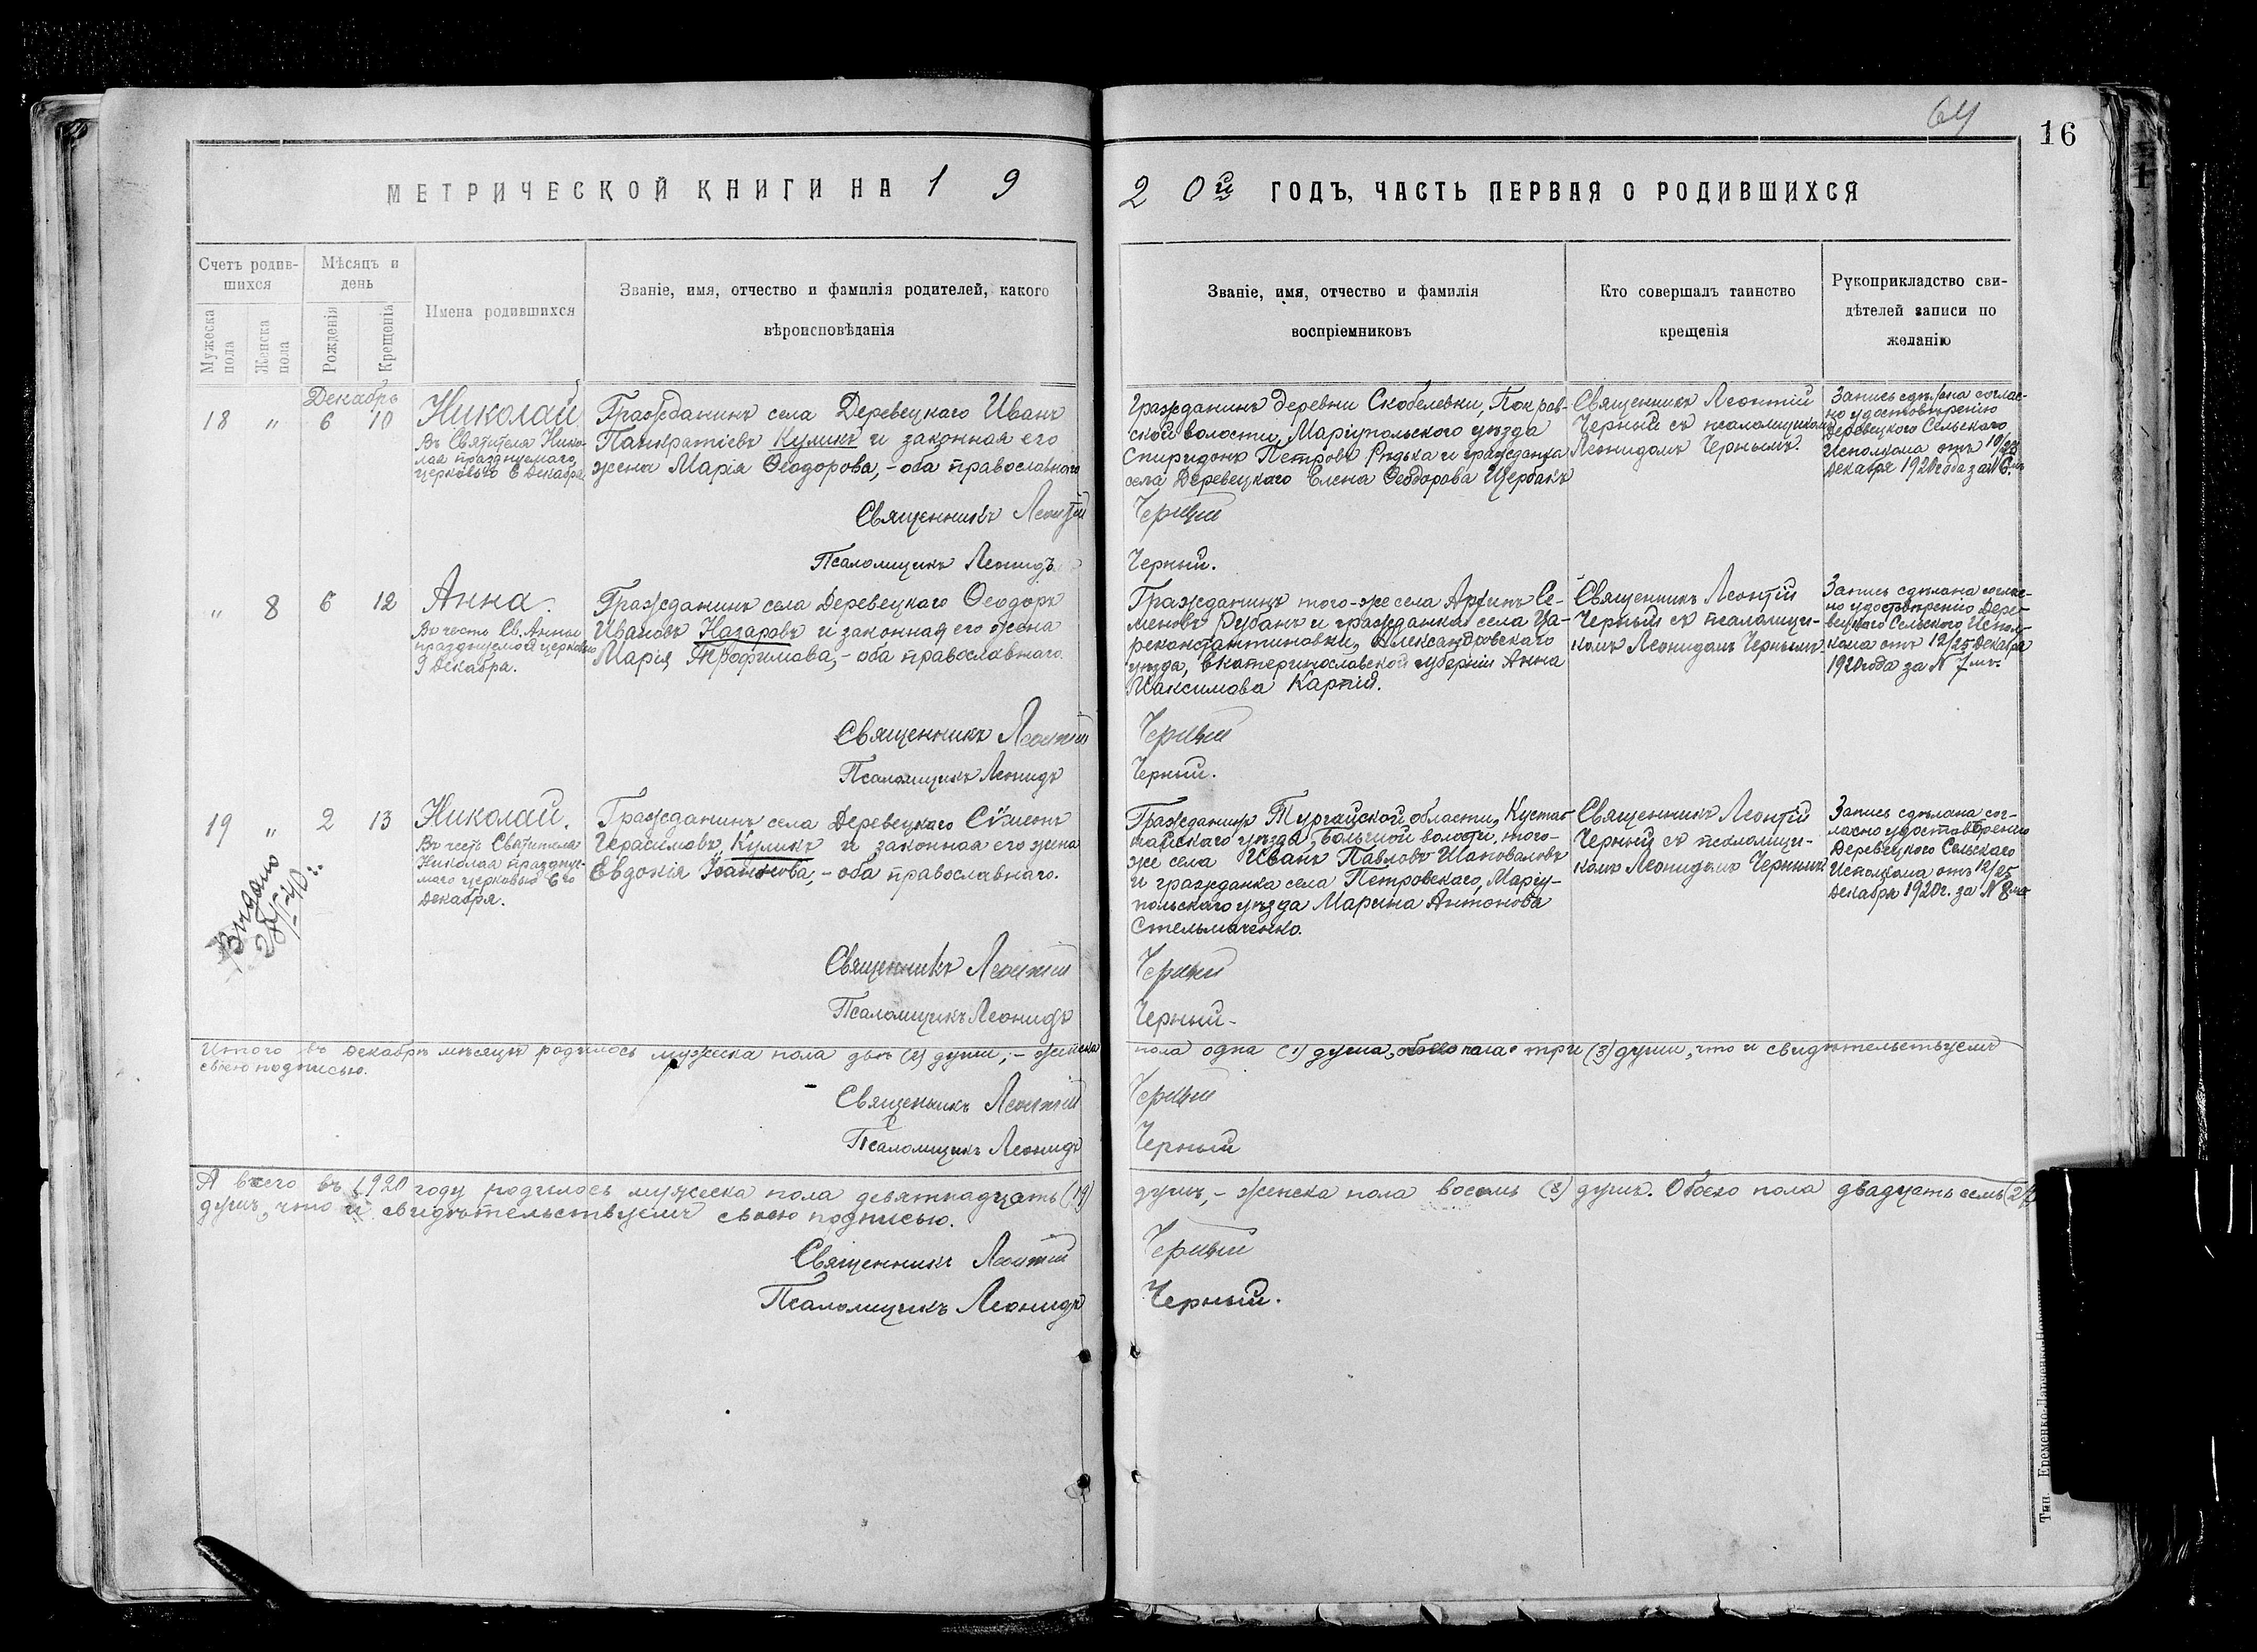 64
16
МЕТРИЧЕСКОЙ КНИГИ НА 19
20й ГОДЪ, ЧАСТЬ ПЕРВАЯ О РОДИВШИХСЯ
Счетъ родив-
шихся
Мужеска
пола
Женска
пола
Мѣсяцъ и
день
Рожденія
Крещенія
Имена родившихся
Званіе, имя, отчество и фамилія родителей, какого
вѣроисповѣданія
Званіе, имя, отчество и фамилія
воспріемниковъ
Кто совершалъ таинство
крещенія
Рукоприкладство сви-
дѣтелей записи по
желанію
Декабрь
18 " 6 10
Николай
Въ Святителя Нико-
лая празднуемаго
церковью 6 Декабря
Гражданинъ села Деревецкаго Иванъ
Панкратіевъ Куликъ и законная его
жена Марія Ѳеодорова, - оба православнаго
Гражданинъ деревни Скобелевки, Покров-
ской волости, Маріупольскаго уѣзда
Спиридонъ Петровъ Рѣдька и гражданка
села Деревецкаго Елена Ѳеодорова Щербакъ
Священникъ Леонтій
Черный съ псаломщикомъ
Леонидомъ Чернымъ.
Запись сдѣлана соглас-
но удостовѣренію
Деревецкаго Сельскаго
Исполкома отъ 10/23
Декабря 1920 года за № 6
Священникъ Леонтій Черный
Псаломщикъ Леонидъ Черный.
" 8 6 12
Анна.
Въ честь Св. Анны
празднуемой церковью
9 Декабря.
Гражданинъ села Деревецкаго Ѳеодоръ
Ивановъ Назаровъ и законная его жена
Марія Трофимова, - оба православнаго.
Гражданинъ того-же села Се-
меновъ Рубанъ и гражданка села Ца-
реконстантиновки, Александровскаго
уѣзда, Екатеринославской губерніи Анна
Максимова Карпій.
Священникъ Леонтій
Черный съ псаломщи-
комъ Леонидомъ Чернымъ.
Запись сдѣлана соглас-
но удостовѣренію Дере-
вецкаго Сельскаго Испол-
кома отъ 12/25 Декабря
1920 года за № 7мъ.
Священникъ Леонтій Черный
Псаломщикъ Леонидъ Черный.
19 " 2 13
Николай.
Въ честь Святителя
Николая праздну-
маго церковью 6го
Декабря.
Гражданинъ села Деревецкаго Сѵмеонъ
Герасимовъ Куликъ и законная его жена
Евдокія Іоаннова, - оба православнаго.
Гражданинъ Тургайской области, Куста-
найскаго уѣзда, Большой волости, того-
же села Иванъ Павловъ Шаповаловъ
и гражданка села Петровскаго, Маріу-
польскаго уѣзда Марина Антонова
Стельмаченко.
Священникъ Леонтій
Черный съ псаломщи-
комъ Леонидомъ Чернымъ
Запись сдѣлана сог-
ласно удостовѣренію
Деревецкаго Сельскаго
Исполкома отъ 12/25
Декабря 1920г. за № 8мъ
Выдано
Священникъ Леонтій Черный
Псаломщикъ Леонидъ Черный.
Итого въ Декабрѣ мѣсяцѣ родилось мужеска пола двѣ (2) души, - женска пола одна (1) душа, обоего пола три (3) души, что и свидѣтельствуемъ
своею подписью.
Священникъ Леонтій Черный
Псаломщикъ Леонидъ Черный
А всего въ 1920 году родилось мужеска пола девятнадцать (19) душъ, - женска пола восемь (8) душъ. Обоего пола двадцать семь (27)
душъ, что и свидѣтельствуемъ своею подписью.
Священникъ Леонтій Черный
Псаломщикъ Леонидъ Черный.